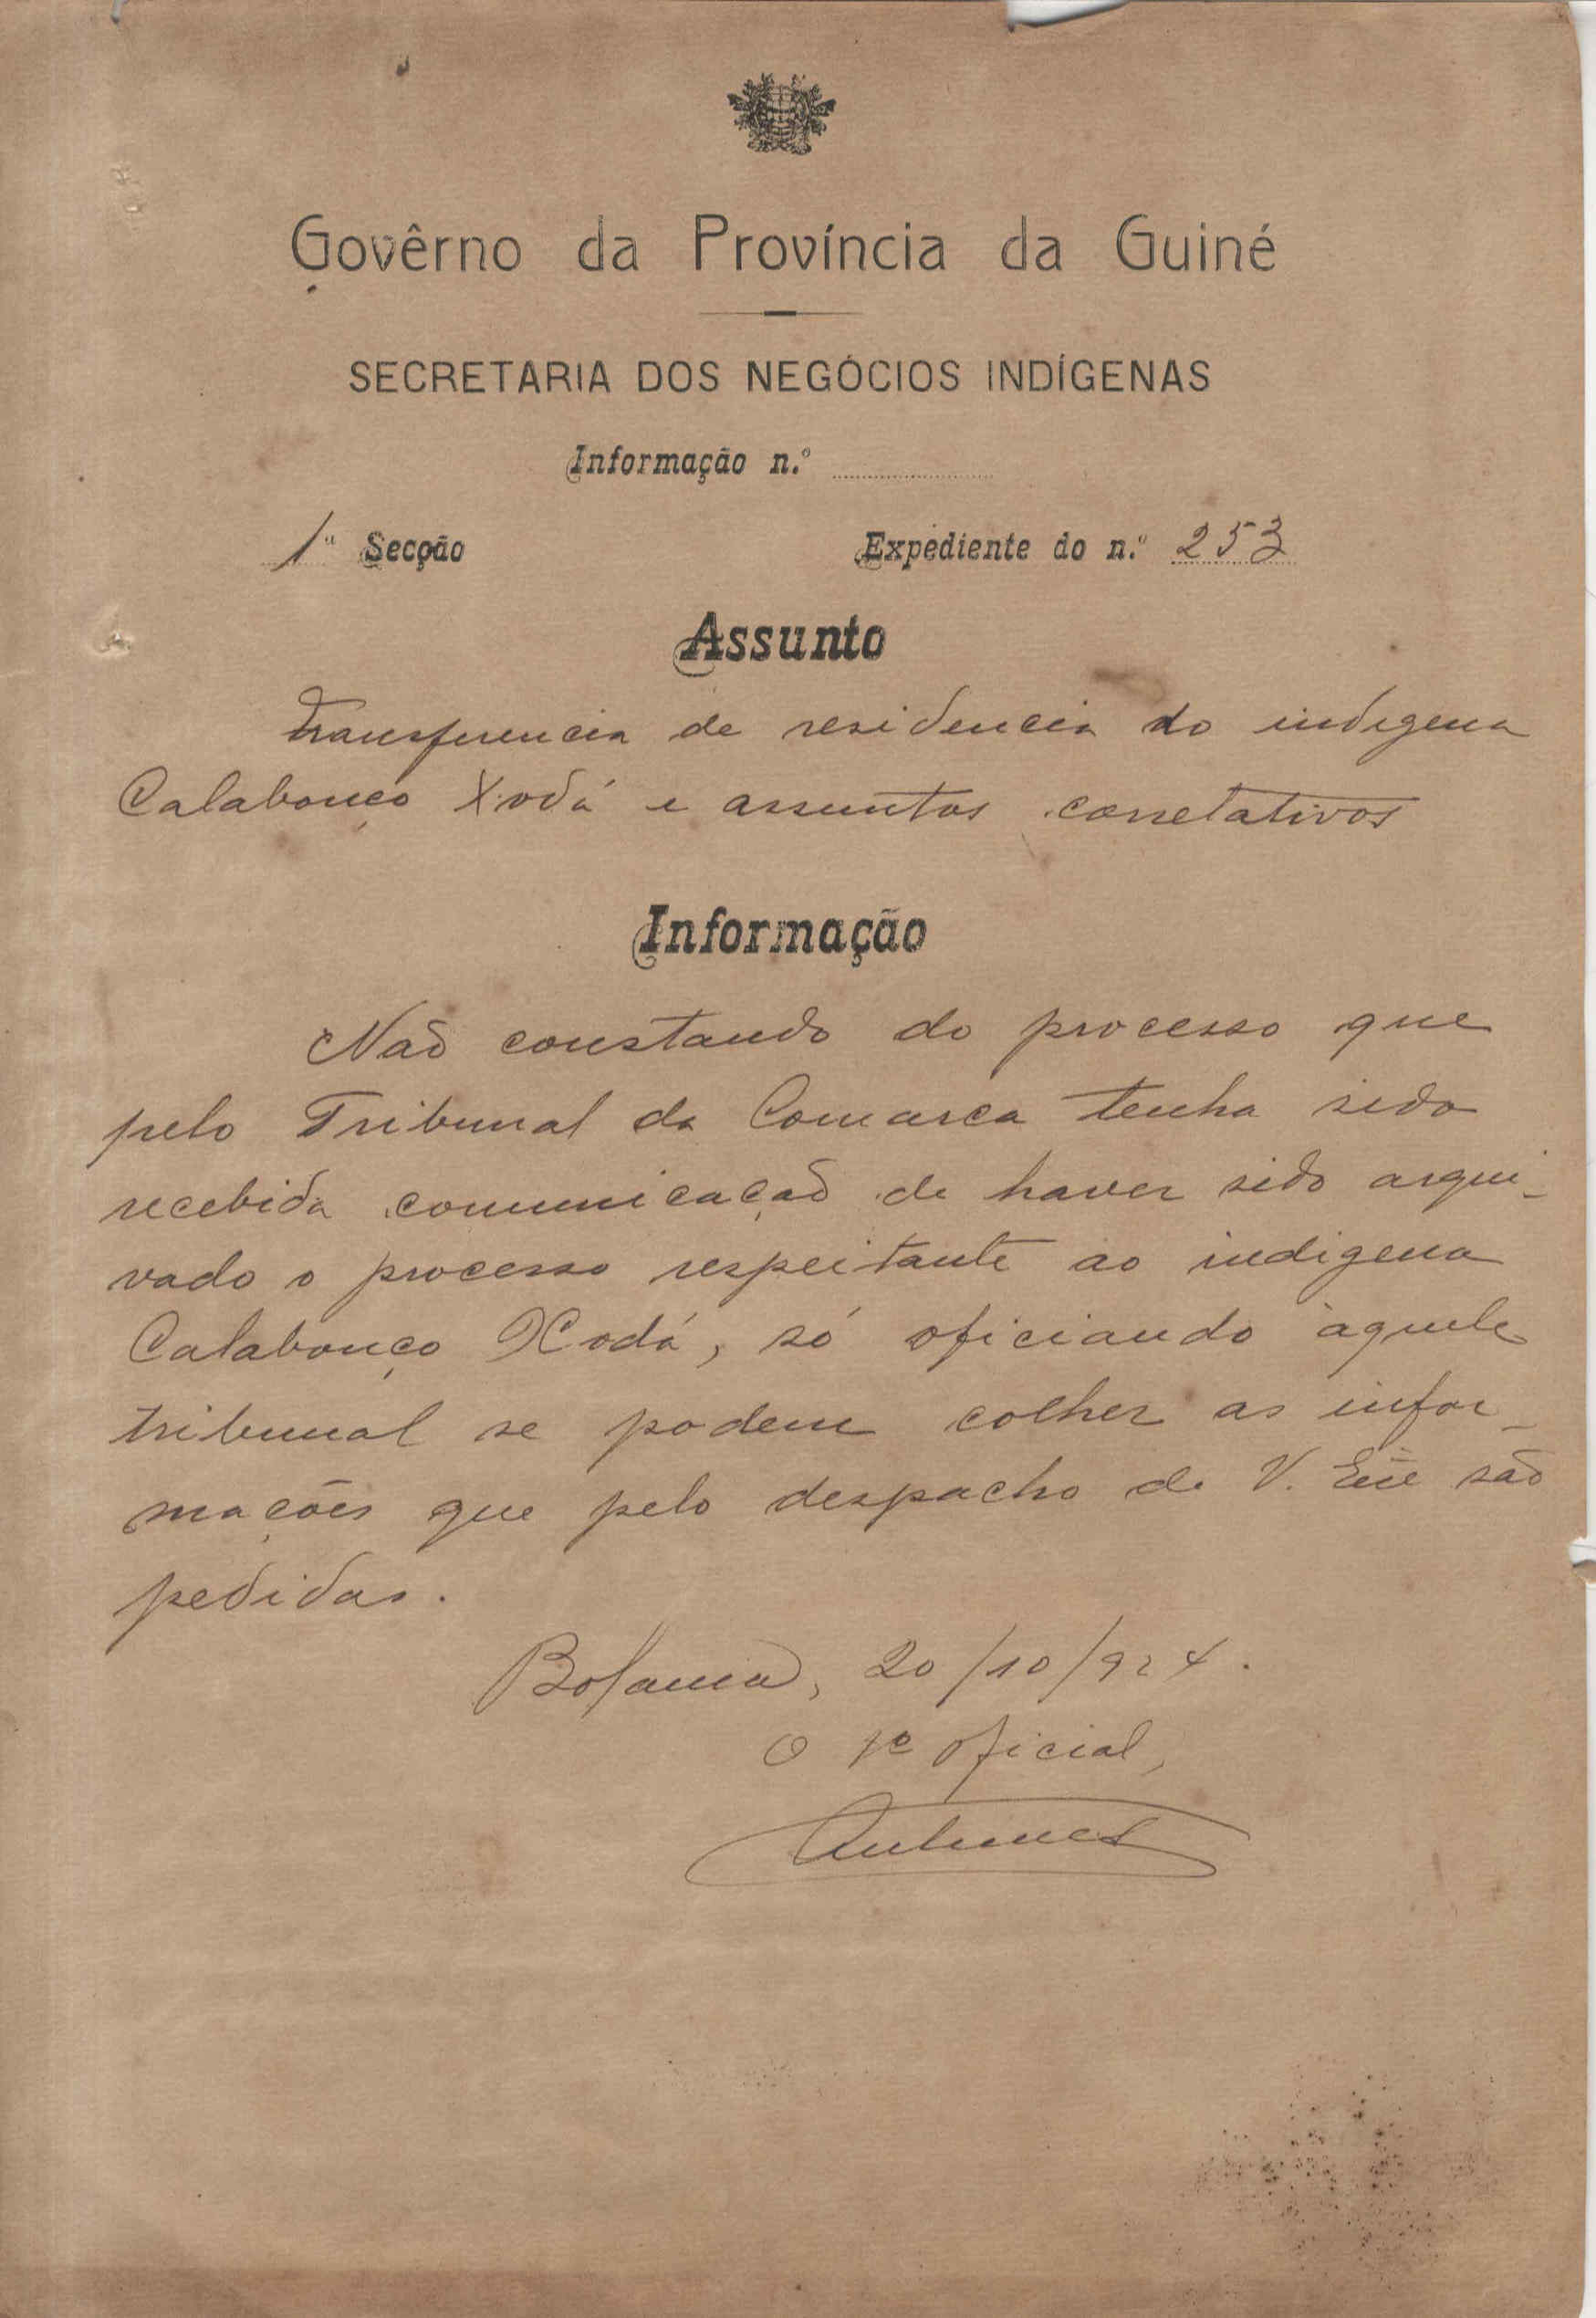 Govêrno da Província da Guiné
SECRETARIA DOS NEGÓCIOS INDÍGENAS
Informação n.º
1ª Secção Expediente do n.º 253
Assunto
Transferencia de residencia do indigena
Calabouço Xodá e assuntos correlativos
Informação
Não constando do processo que
pelo Tribunal da Comarca tenha sido
recebida comunicação de haver sido arqui-
vado o processo respeitante ao indigena
Calabouço Xodá, só oficiando àquele
tribunal se podem colher as infor-
mações que pelo despacho de V. Exª são
pedidas.
Bolama, 20/10/924.
O 1º oficial,
Antunes